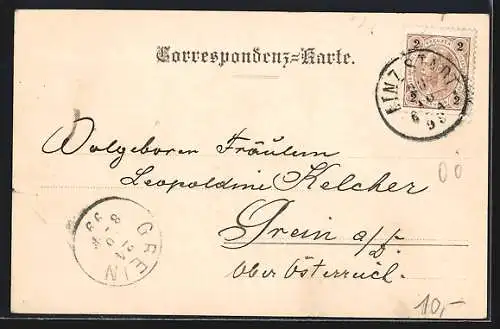 Correspondenz-Karte.
2 2
2 2
LINZ STADT
Wolgeboren Fräulein
Leopoldine Kelcher
Grein a/d.
Ober Österreich.
GREIN
99
10,-